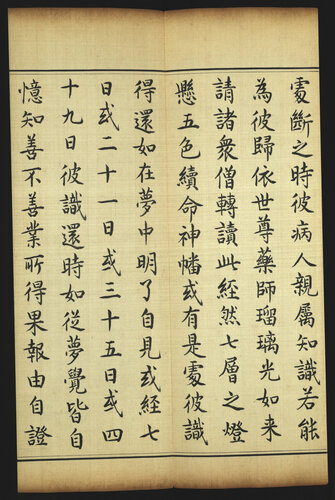 處斷之時彼病人親属知識若能
為彼歸依世尊藥師瑠璃光如來
請諸衆僧轉讀此經然七層之燈
懸五色續命神幡或有是處彼識
得還如在夢中明了自見或經七
日或二十一日或三十五日或四
十九日彼識還時如從夢覺皆自
憶知善不善業所得果報由自證